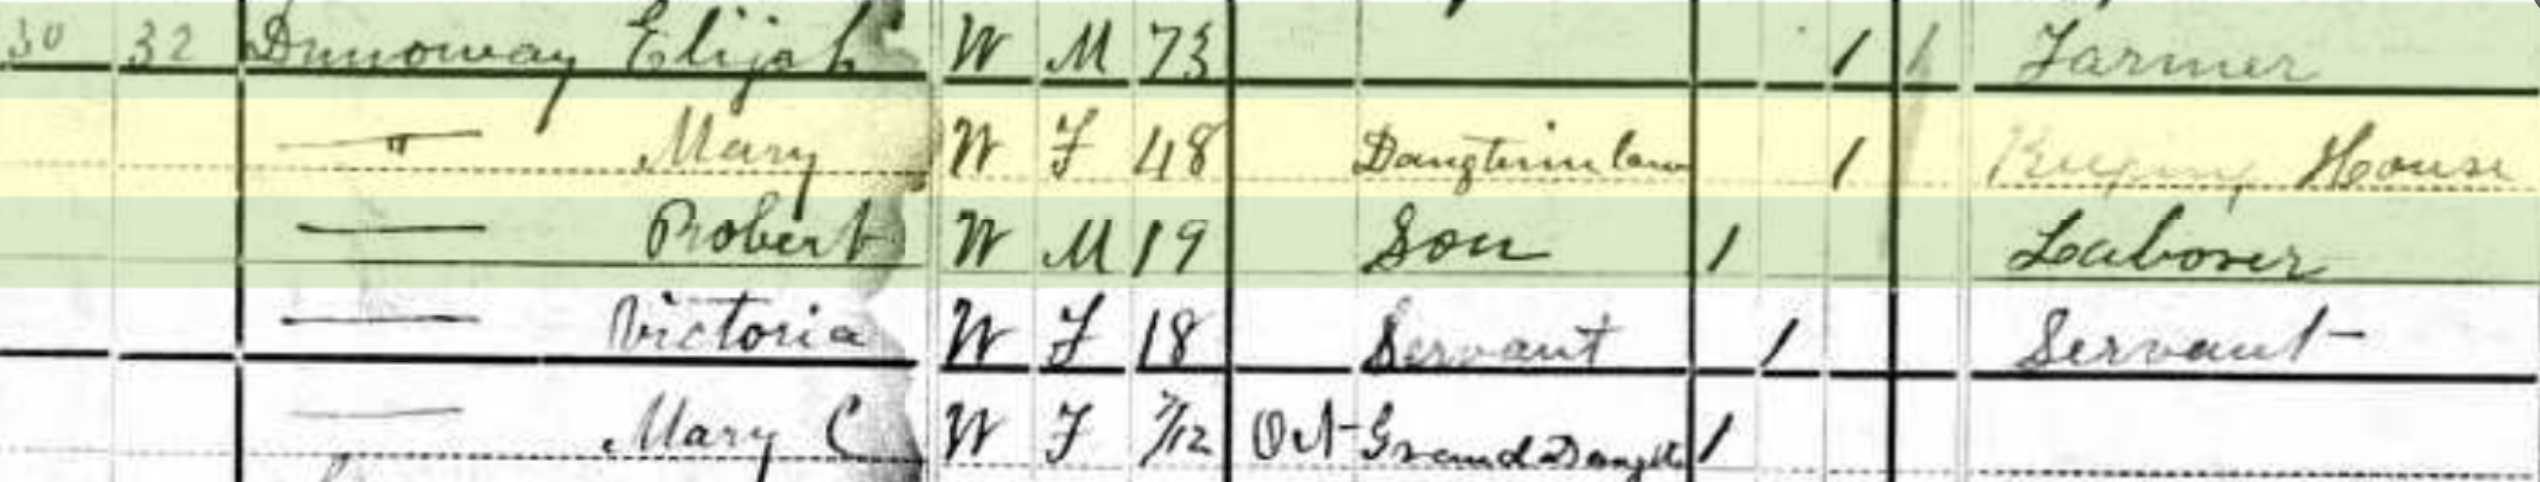 30 32 Dunoway Elijah W M 73 1 1 Farmer
—"— Mary W F 48 Daugterinlaw 1 Keeping House
— Robert W M 19 Son 1 Laborer
— Victoria W F 18 Servant 1 Servant
— Mary C W F 7/12 Oct Grand Daugtr 1